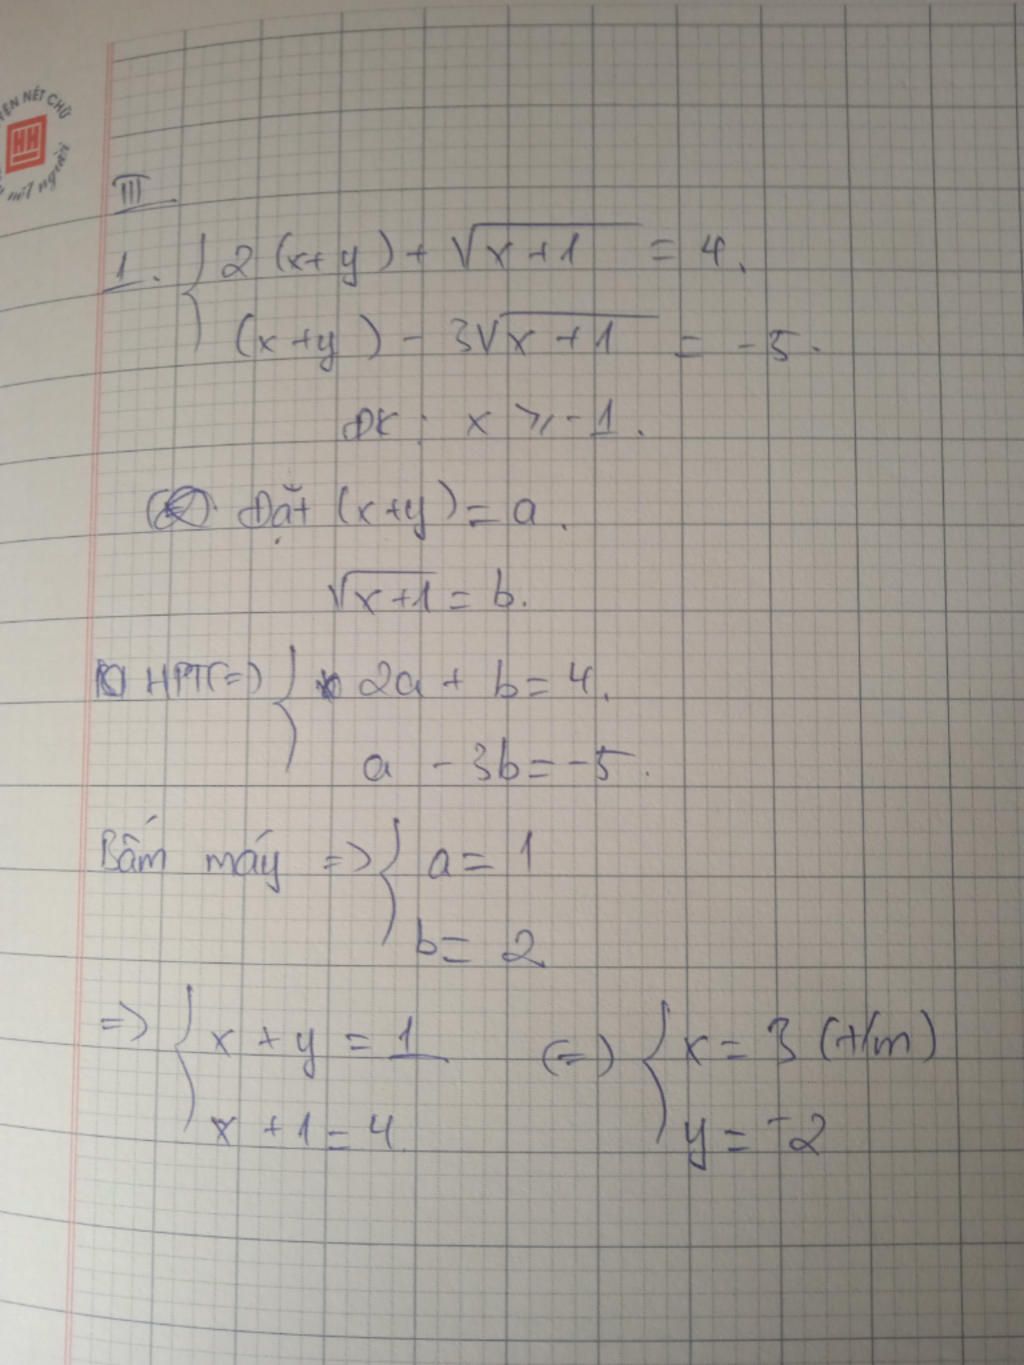 ỆN NÉT CHỮ
HH
nết người
III
1. { 2 (x+y) + √(x+1) = 4.
(x+y) - 3√(x+1) = -5.
ĐK: x ≥ -1.
Đặt (x+y) = a.
√(x+1) = b.
HPT (=) { 2a + b = 4.
a - 3b = -5.
Bấm máy => { a = 1
b = 2
=> { x + y = 1 (=) { x = 3 (t/m)
x + 1 = 4 y = -2